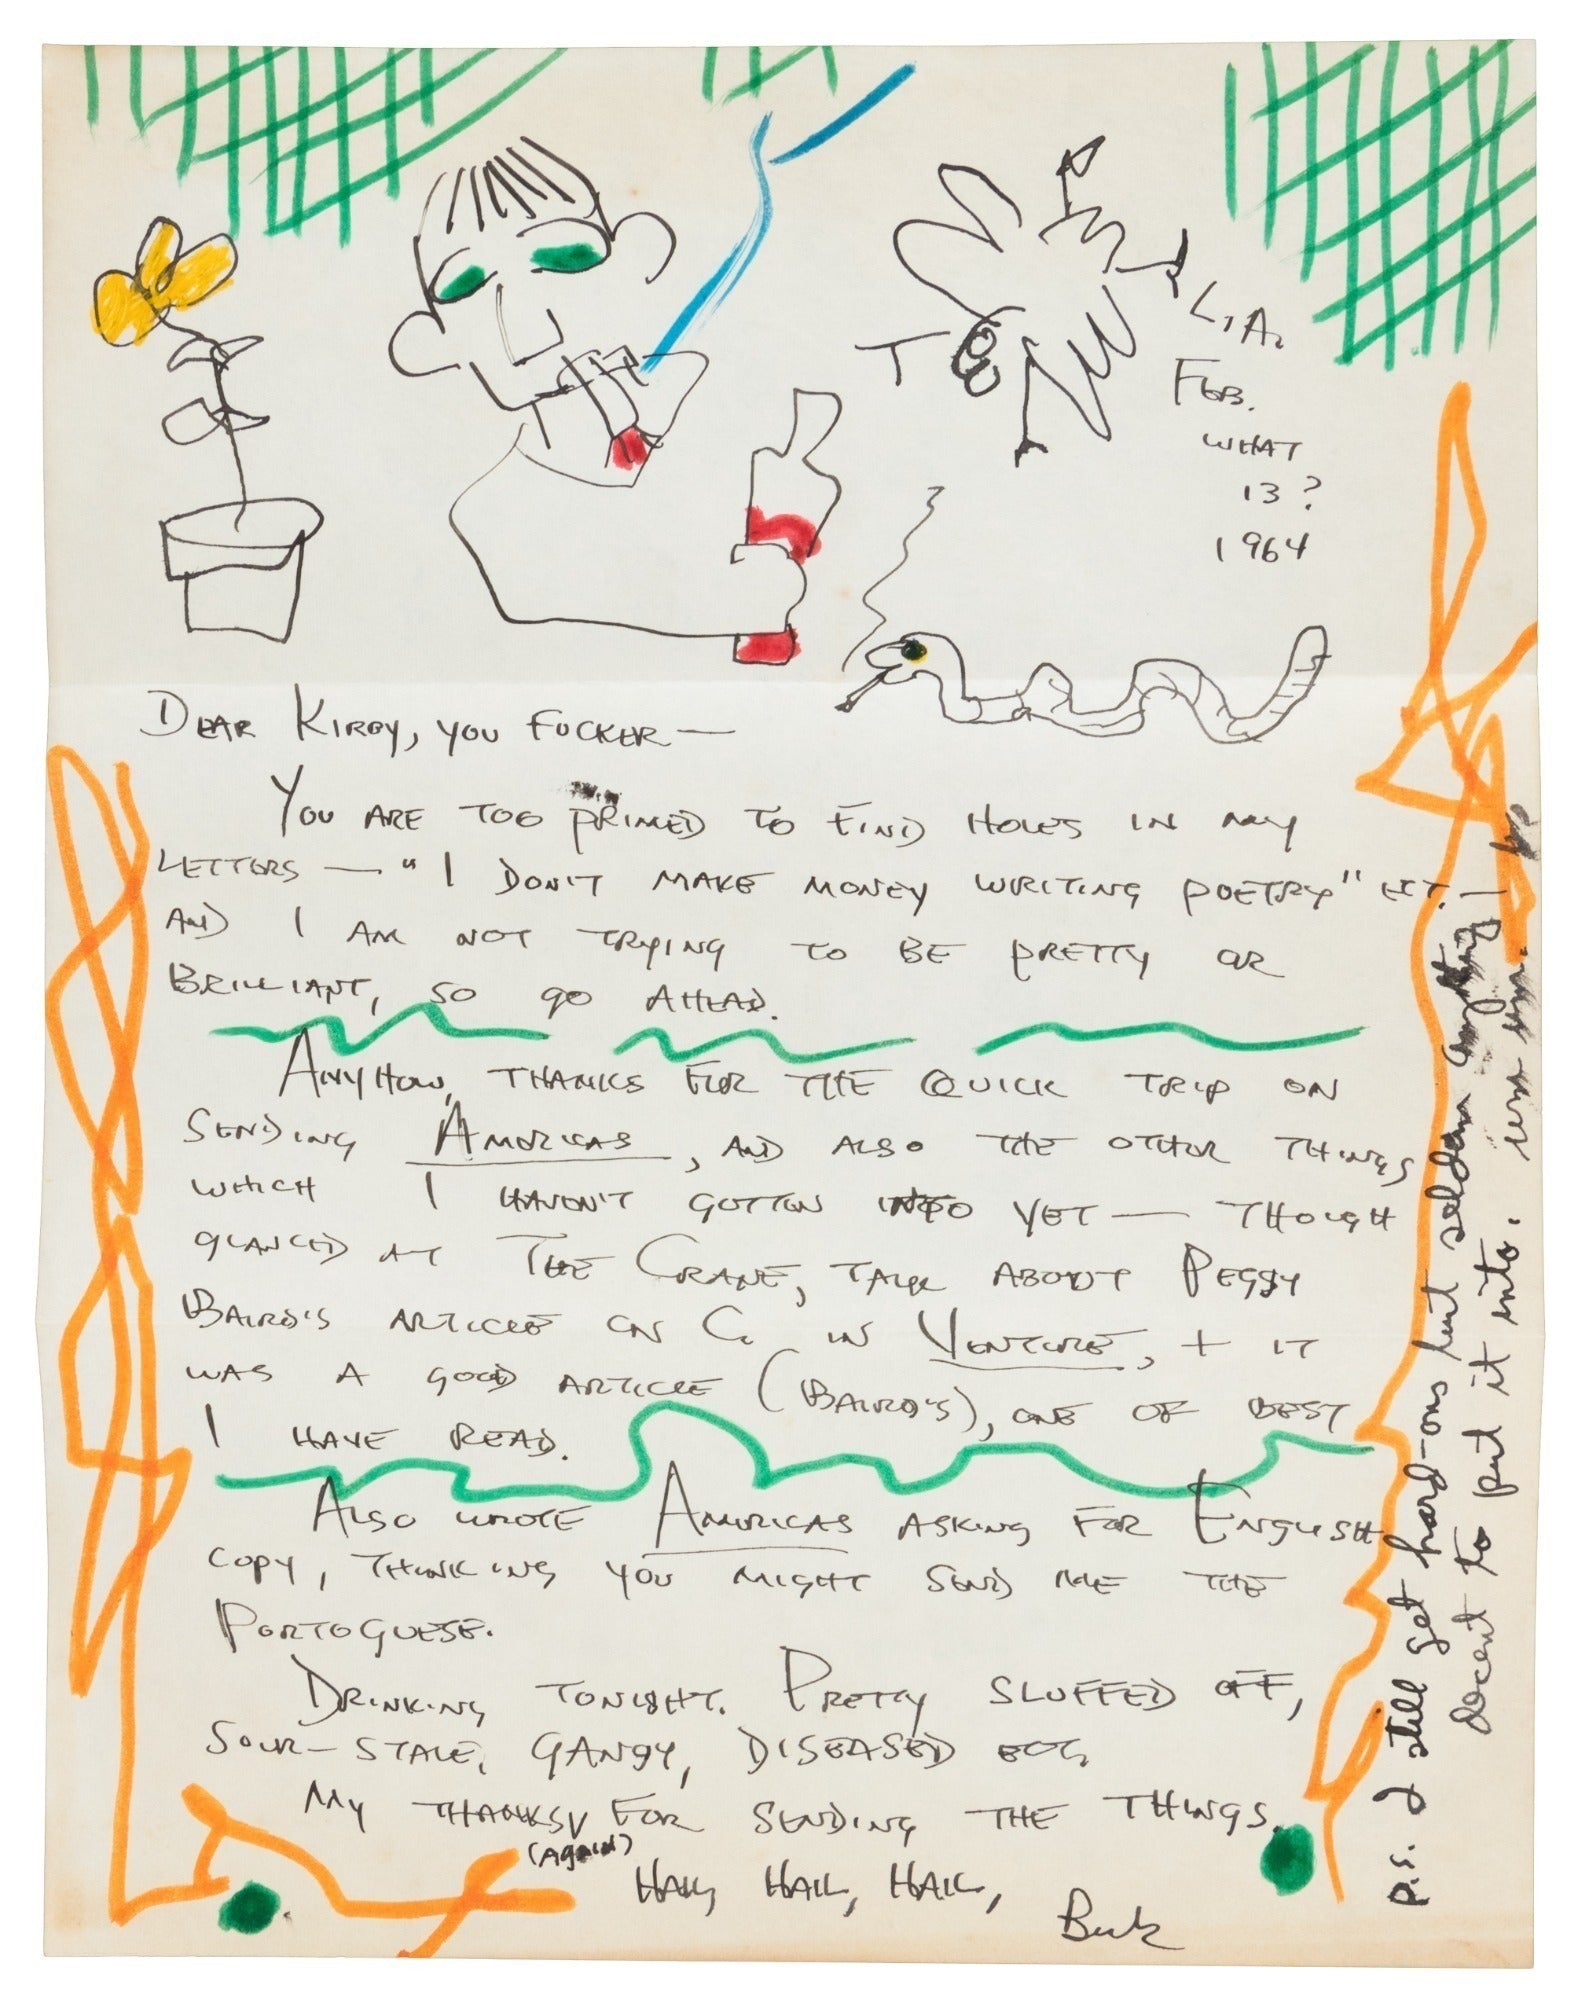 L, A.
FEB.
WHAT
13?
1964
DEAR KIRBY, YOU FUCKER —
YOU ARE TOO PRIMED TO FIND HOLES IN MY
LETTERS — "I DON'T MAKE MONEY WRITING POETRY" ECT.
AND I AM NOT TRYING TO BE PRETTY OR
BRILLIANT, SO GO AHEAD.
ANYHOW, THANKS FOR THE QUICK TRIP ON
SENDING AMERICAS, AND ALSO THE OTHER THINGS
WHICH I HAVEN'T GOTTEN INTO YET — THOUGH
GLANCED AT THE CRANE, TALK ABOUT PEGGY
BAIRD'S ARTICLE ON C. IN VENTURE, + IT
WAS A GOOD ARTICLE (BAIRD'S), ONE OF BEST
I HAVE READ.
ALSO WROTE AMERICAS ASKING FOR ENGLISH
COPY, THINKING YOU MIGHT SEND ME THE
PORTOGUESE.
DRINKING TONIGHT. PRETTY SLUFFED OFF,
SOUR-STALE, GANGY, DISEASED ECT,
MY THANKS FOR SENDING THE THINGS.
(AGAIN)
HAIL, HAIL, HAIL,
Buk
P.S. I still get hard-ons but seldom anything
decent to put it into.